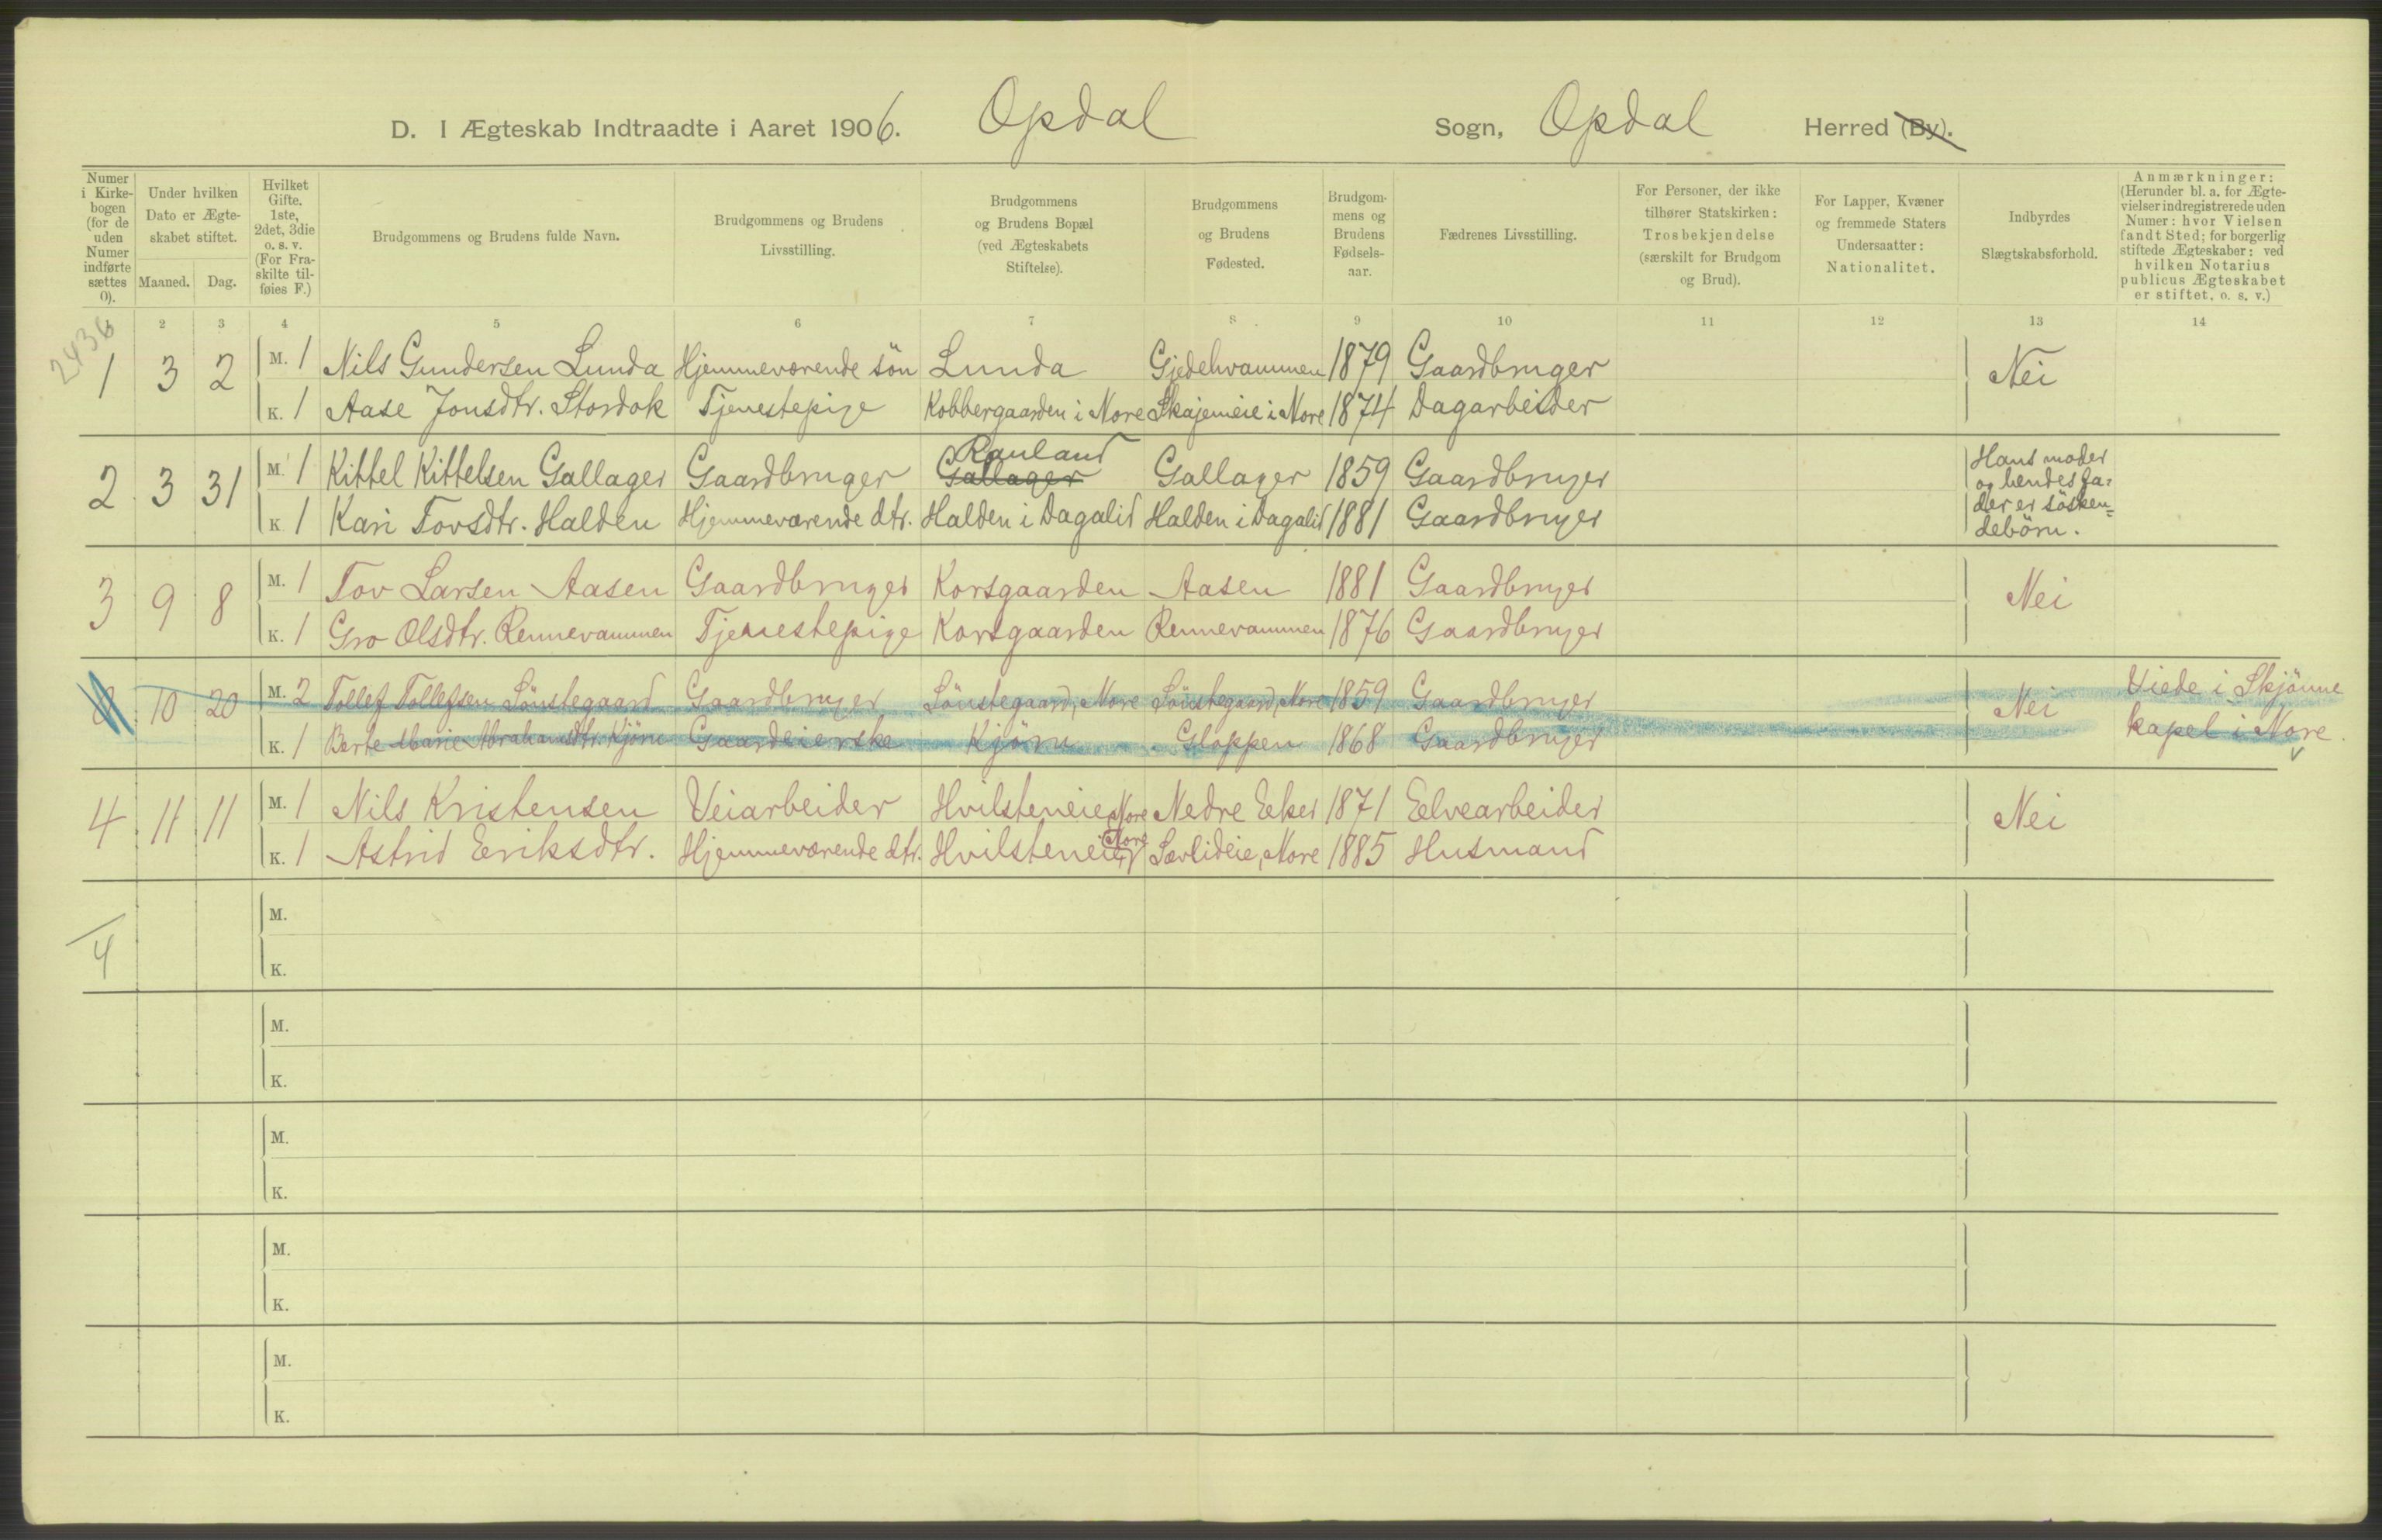 D. I Ægteskab Indtraadte i Aaret 1906. Opdal Sogn, Opdal Herred (By).
Numer i Kirkebogen (for de uden Numer indførte sættes 0).
Under hvilken Dato er Ægteskabet stiftet.
Maaned. Dag.
Hvilket Gifte. 1ste, 2det, 3die o. s. v. (For Fraskilte tilføies F.)
Brudgommens og Brudens fulde Navn.
Brudgommens og Brudens Livsstilling.
Brudgommens og Brudens Bopæl (ved Ægteskabets Stiftelse).
Brudgommens og Brudens Fødested.
Brudgommens og Brudens Fødselsaar.
Fædrenes Livsstilling.
For Personer, der ikke tilhører Statskirken: Trosbekjendelse (særskilt for Brudgom og Brud).
For Lapper, Kvæner og fremmede Staters Undersaatter: Nationalitet.
Indbyrdes Slægtskabsforhold.
Anmærkninger: (Herunder bl. a. for Ægtevielser indregistrerede uden Numer: hvor Vielsen fandt Sted; for borgerlig stiftede Ægteskaber: ved hvilken Notarius publicus Ægteskabet er stiftet, o. s. v.)
2 3 4 5 6 7 8 9 10 11 12 13 14
2436
1 3 2 M. 1 Nils Gundersen Lunda Hjemmeværende søn Lunda Gjedehvammen 1879 Gaardbruger Nei
K. 1 Aase Jonsdtr. Stordok Tjenestepige Kobbergaarden i Nore Skajemeie i Nore 1874 Dagarbeider
Rauland
2 3 31 M. 1 Kittel Kittelsen Gallager Gaardbruger Gallager Gallager 1859 Gaardbruger Hans moder
og hendes fa=
K 1 Kari Tovsdtr. Halden Hjemmeværende dtr. Halden i Dagalid Halden i Dagalid 1881 Gaardbruger der er søsken=
debørn.
3 9 8 M. 1 Tov Larsen Aasen Gaardbruger Korsgaarden Aasen 1881 Gaardbruger Nei
K. 1 Gro Olsdtr. Rennevammen Tjenestepige Korsgaarden Rennevammen 1876 Gaardbruger
10 20 M. 2 Tollef Tollefsen Sønstegaard Gaardbruger Sønstegaard, Nore Sønstegaard, Nore 1859 Gaardbruger Nei Viede i Skjønne
K. 1 Berte Marie Abrahamsdtr. Kjørn Gaardeierske Kjørn Gloppen 1868 Gaardbruger kapel i Nore.
4 11 11 M. 1 Nils Kristensen Veiarbeider Hvilsteneie Nore Nedre Eeker 1871 Eelvearbeider Nei
K. 1 Astrid Eriksdtr. Hjemmeværende dtr. Hvilsteneie, Nore Sævlideie, Nore 1885 Husmand
M.
4
K.
M.
K.
M.
K.
M.
K.
M.
K.